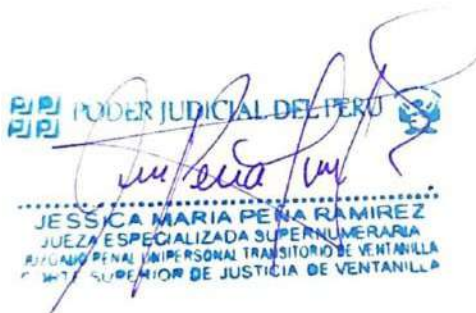 PJ PJ PODER JUDICIAL DEL PERÚ
Peña
JESSICA MARIA PEÑA RAMIREZ
JUEZA ESPECIALIZADA SUPERNUMERARIA
JUZGADO PENAL UNIPERSONAL TRANSITORIO DE VENTANILLA
CORTE SUPERIOR DE JUSTICIA DE VENTANILLA